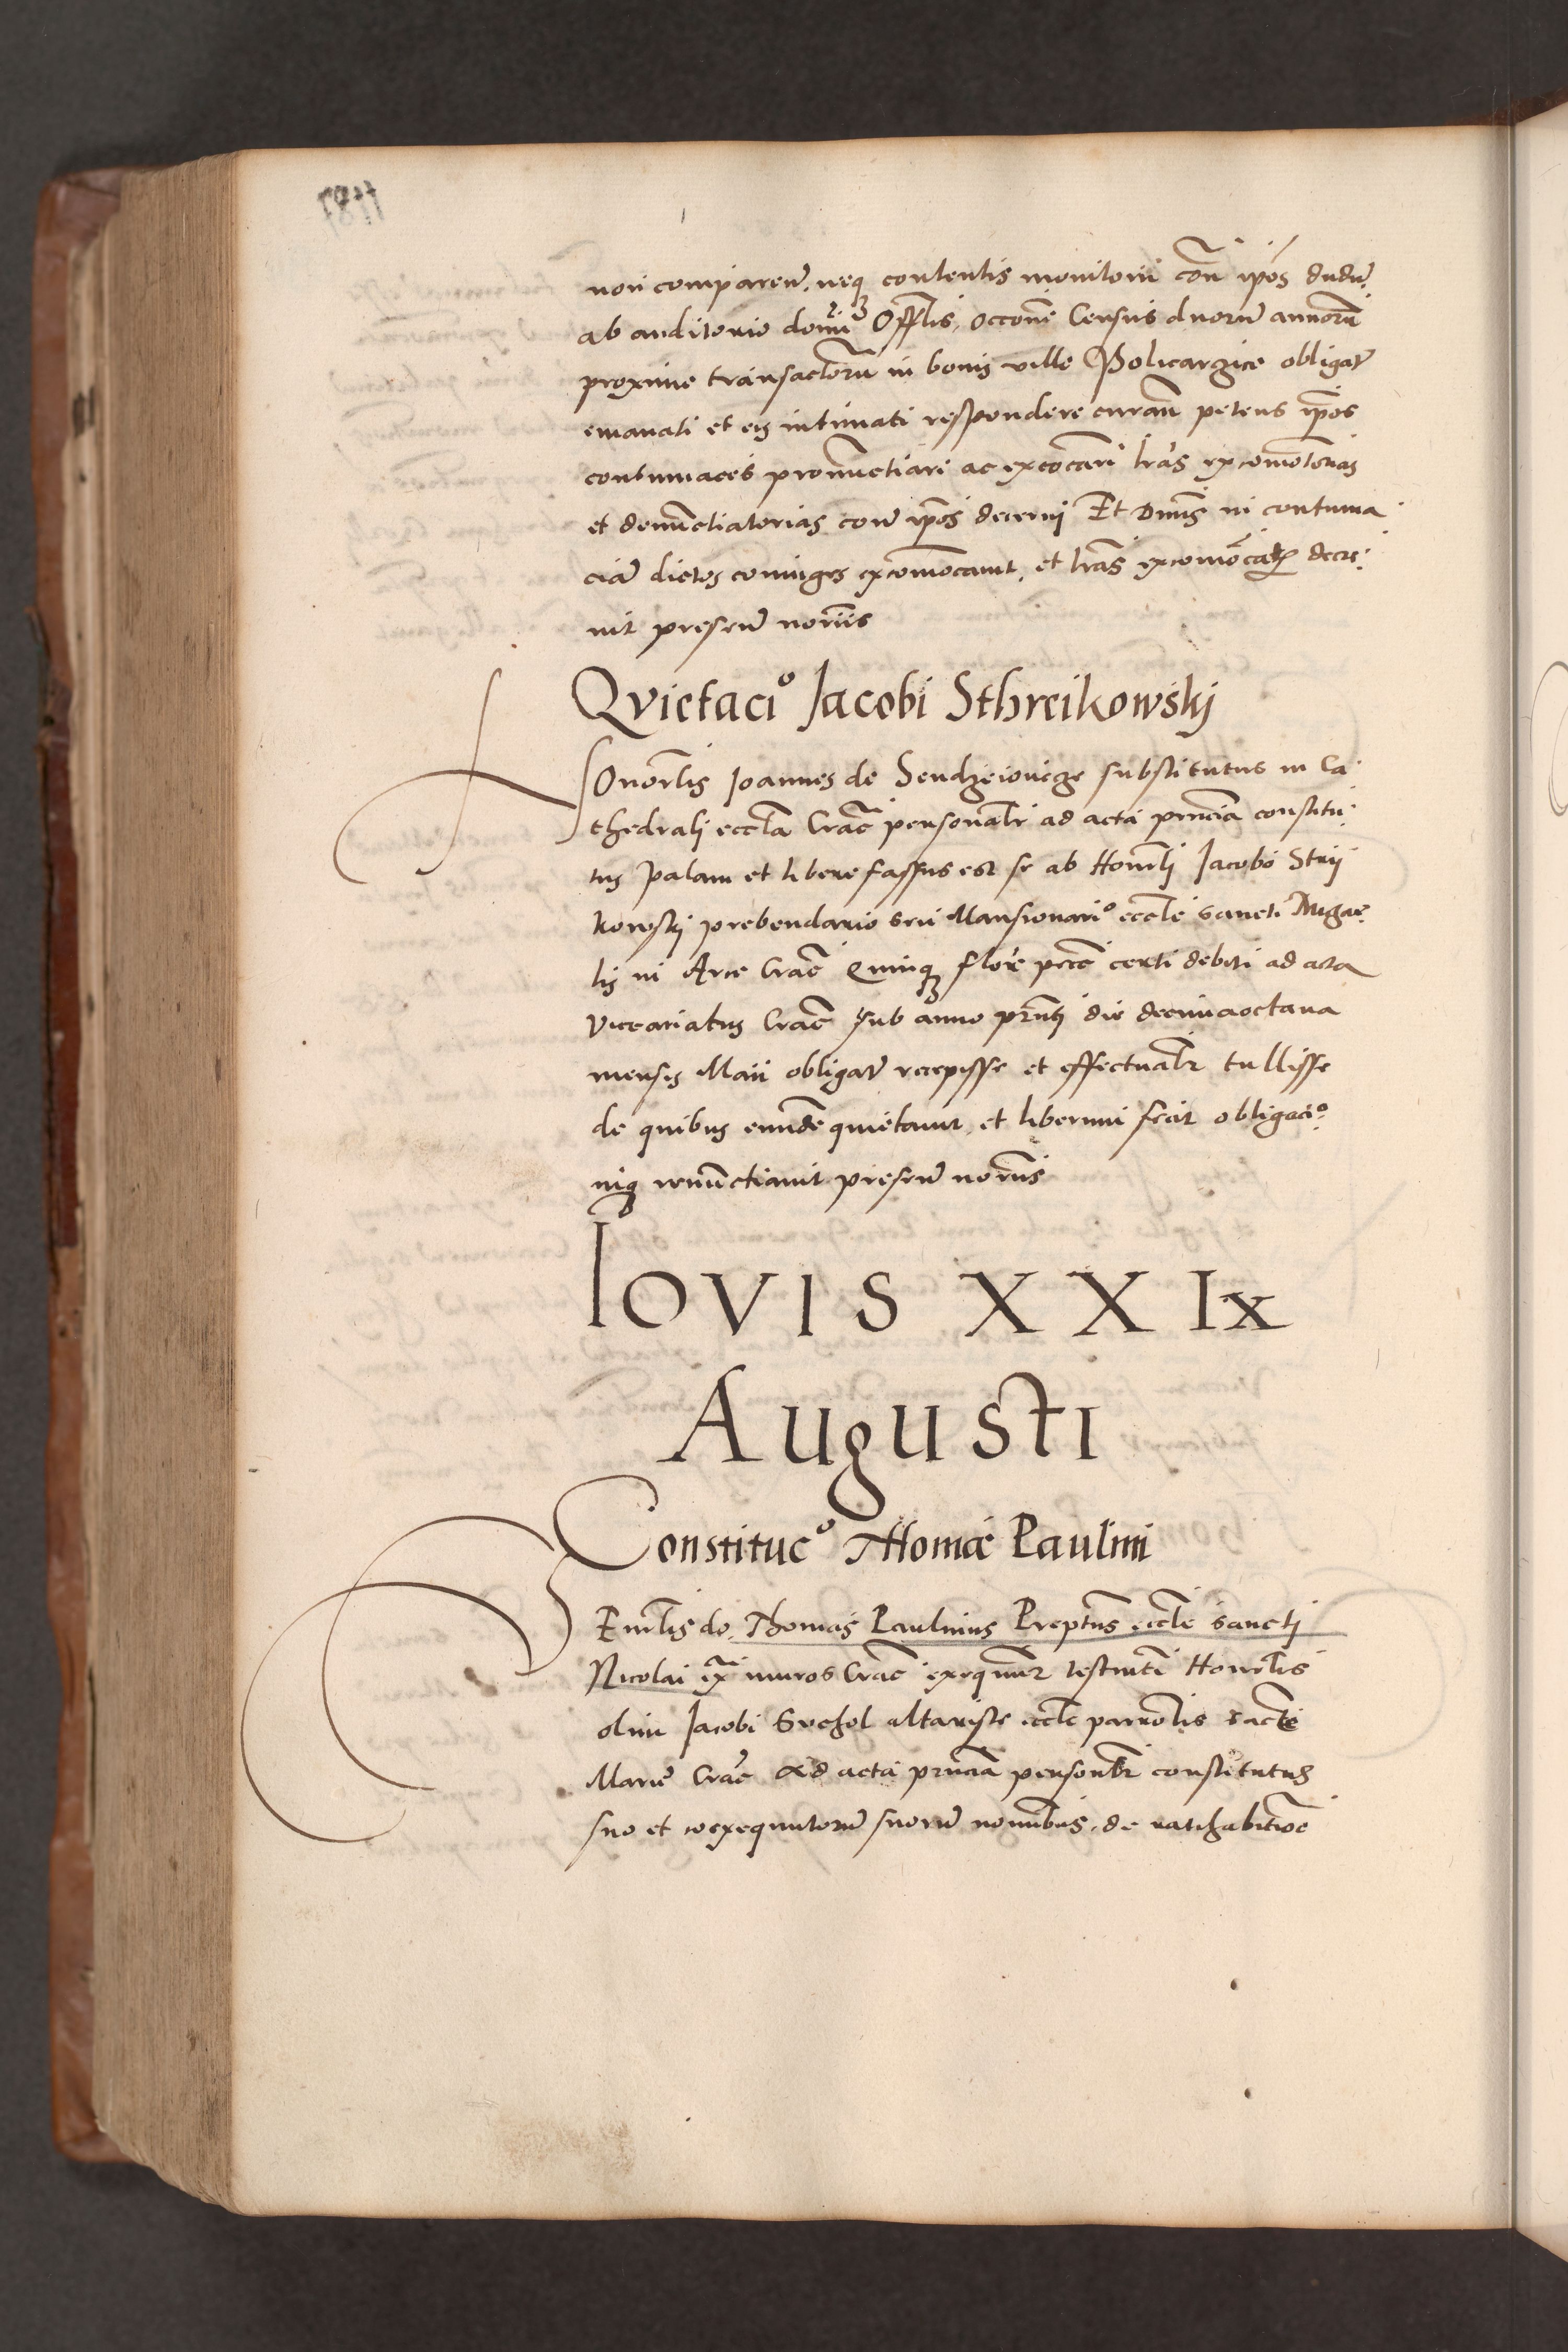 non comparen̄. neq contentis monitorii con̄ ip̄os dudū
ab auditorio domī Offlis, occōne Census duorū annorū
proxime transactorū in bonis ville Policarzice obligat̄
emanati et eis intimati respondere curan̄ petens ip̄os
contumaces pronūctiari ac excōcari lr̄as excomōtorias
et denūctiatorias con̄ ip̄os decerni Et Dn̄us in contuma
ciā dictos coniuges excomōcavit, et lr̄as decre
vit presen̄ nōriis
Qvietaciº Jacobi Sthreikowskj
Honōrlis Joannes de Sendzeiovicze substitutus in Ca
thedralj eccl̄a Crac̄ personalr̄ ad acta pn̄cia constitu
tus Palam et libere fassus est se ab Honorl̄j Jacobo Strij
kowskj prebendario seu Mansionariº eccl̄e sancti Migae
lis in Arce Crac̄ Quinq flor̄ pecc̄ certi debiti ad acta
Vicariatus Crac̄ sub anno prn̄ti die decimaoctava
mensis Maii obligat̄ recepisse et effectualr̄ tullisse
de quibus eund̄e quietavit, et liberum fecit obligaciº
niq renūctiavit presen̄ nōriis
IOVIS XXIX
AugustI
Constitucº THomae Paulini
Venrl̄is do. Thomas Paulinus Preptus eccl̄e Sanctj
Nicolai ex̄ muros Crac̄ exequut̄ testm̄ti Honorl̄is
olim Jacobi altariste eccl̄e parrol̄is sacte
Marie Crac̄ Ad acta pn̄cia personlr̄ constitutus
suo et coexequutorū suorū nominibus, de ratihabitioe